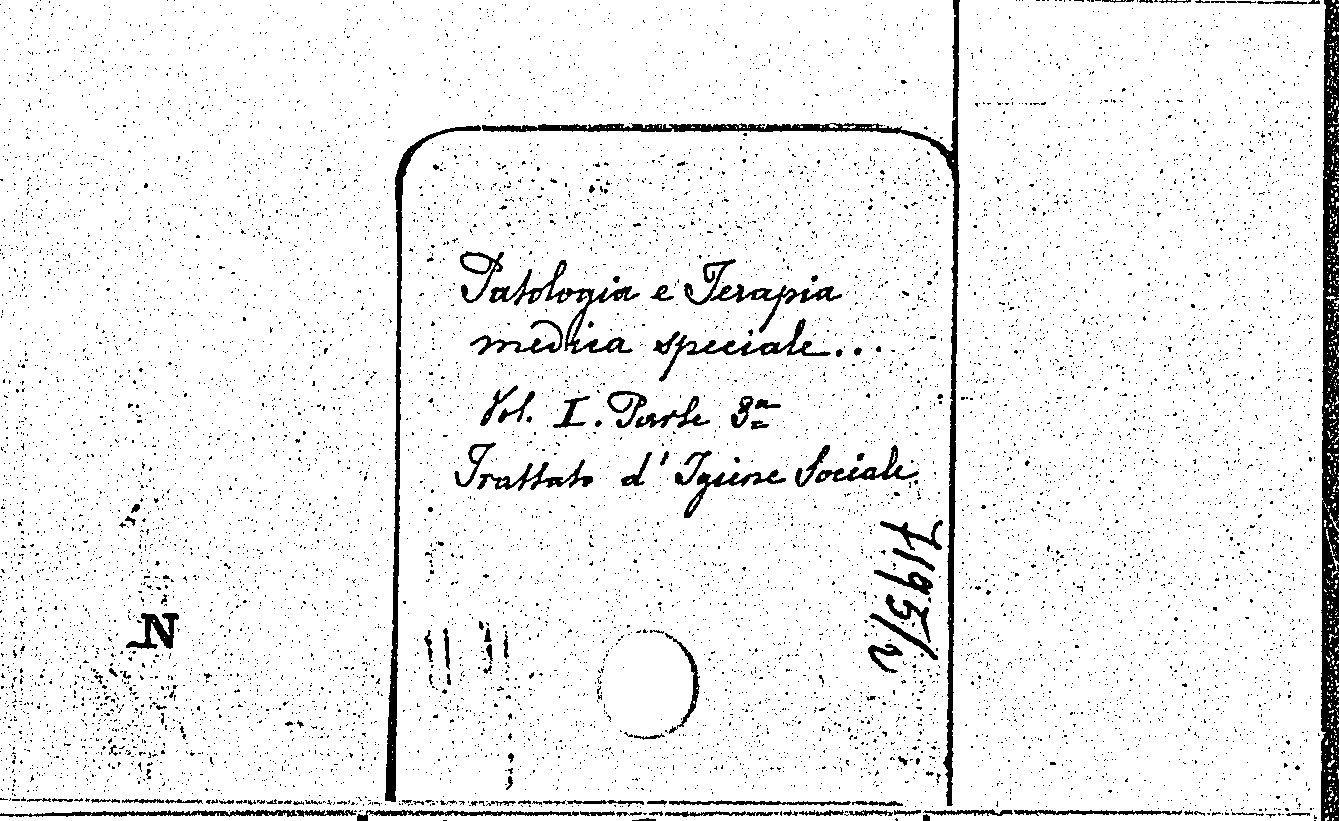 Patologia e Terapia
medica speciale...
Vol. I. Parte 3ª
Trattato d'Igiene Sociale
7195/2
N